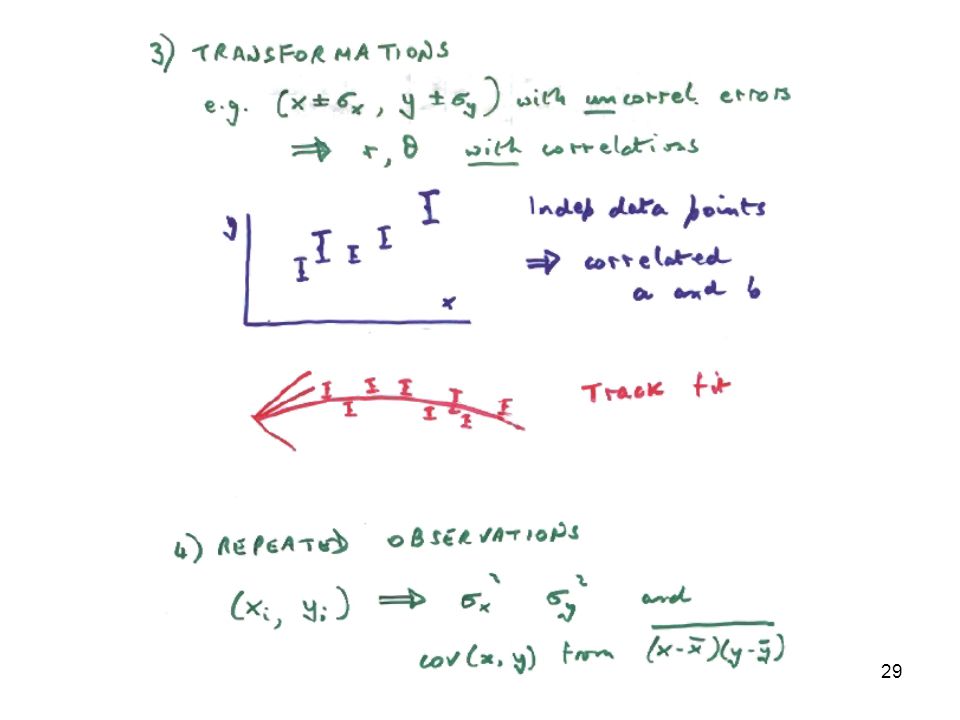 3) TRANSFORMATIONS
e.g. (x ± σx, y ± σy) with uncorrel. errors
⇒ r, θ with correlations
y
x
Indep data points
⇒ correlated
a and b
Track fit
4) REPEATED OBSERVATIONS
(xi, yi) ⇒ σx² σy² and
cov(x, y) from (x-x̄)(y-ȳ)
29